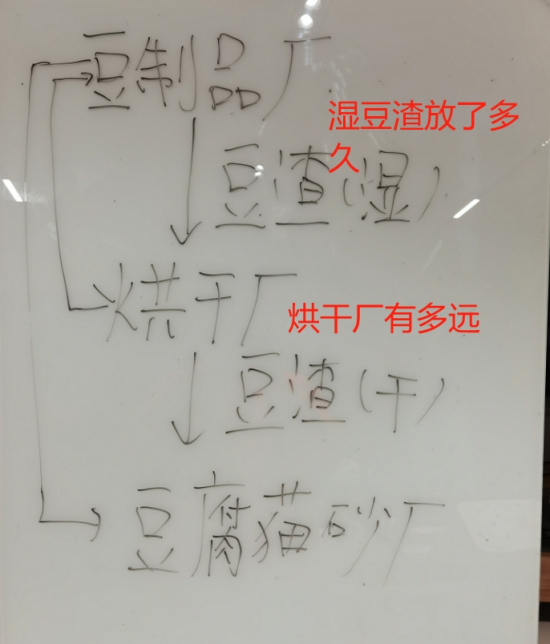 豆制品厂
湿豆渣放了多
久
豆渣(湿)
烘干厂
烘干厂有多远
豆渣(干)
豆腐猫砂厂